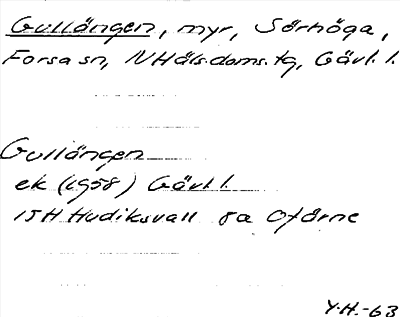 Gullängen, myr, Sörhöga,
Forsa sn, NHäls.doms.tg, Gävl.l.
Gullängen
ek (1958) Gävl.l.
15H Hudiksvall 5a Ofärne
Y.H.-63